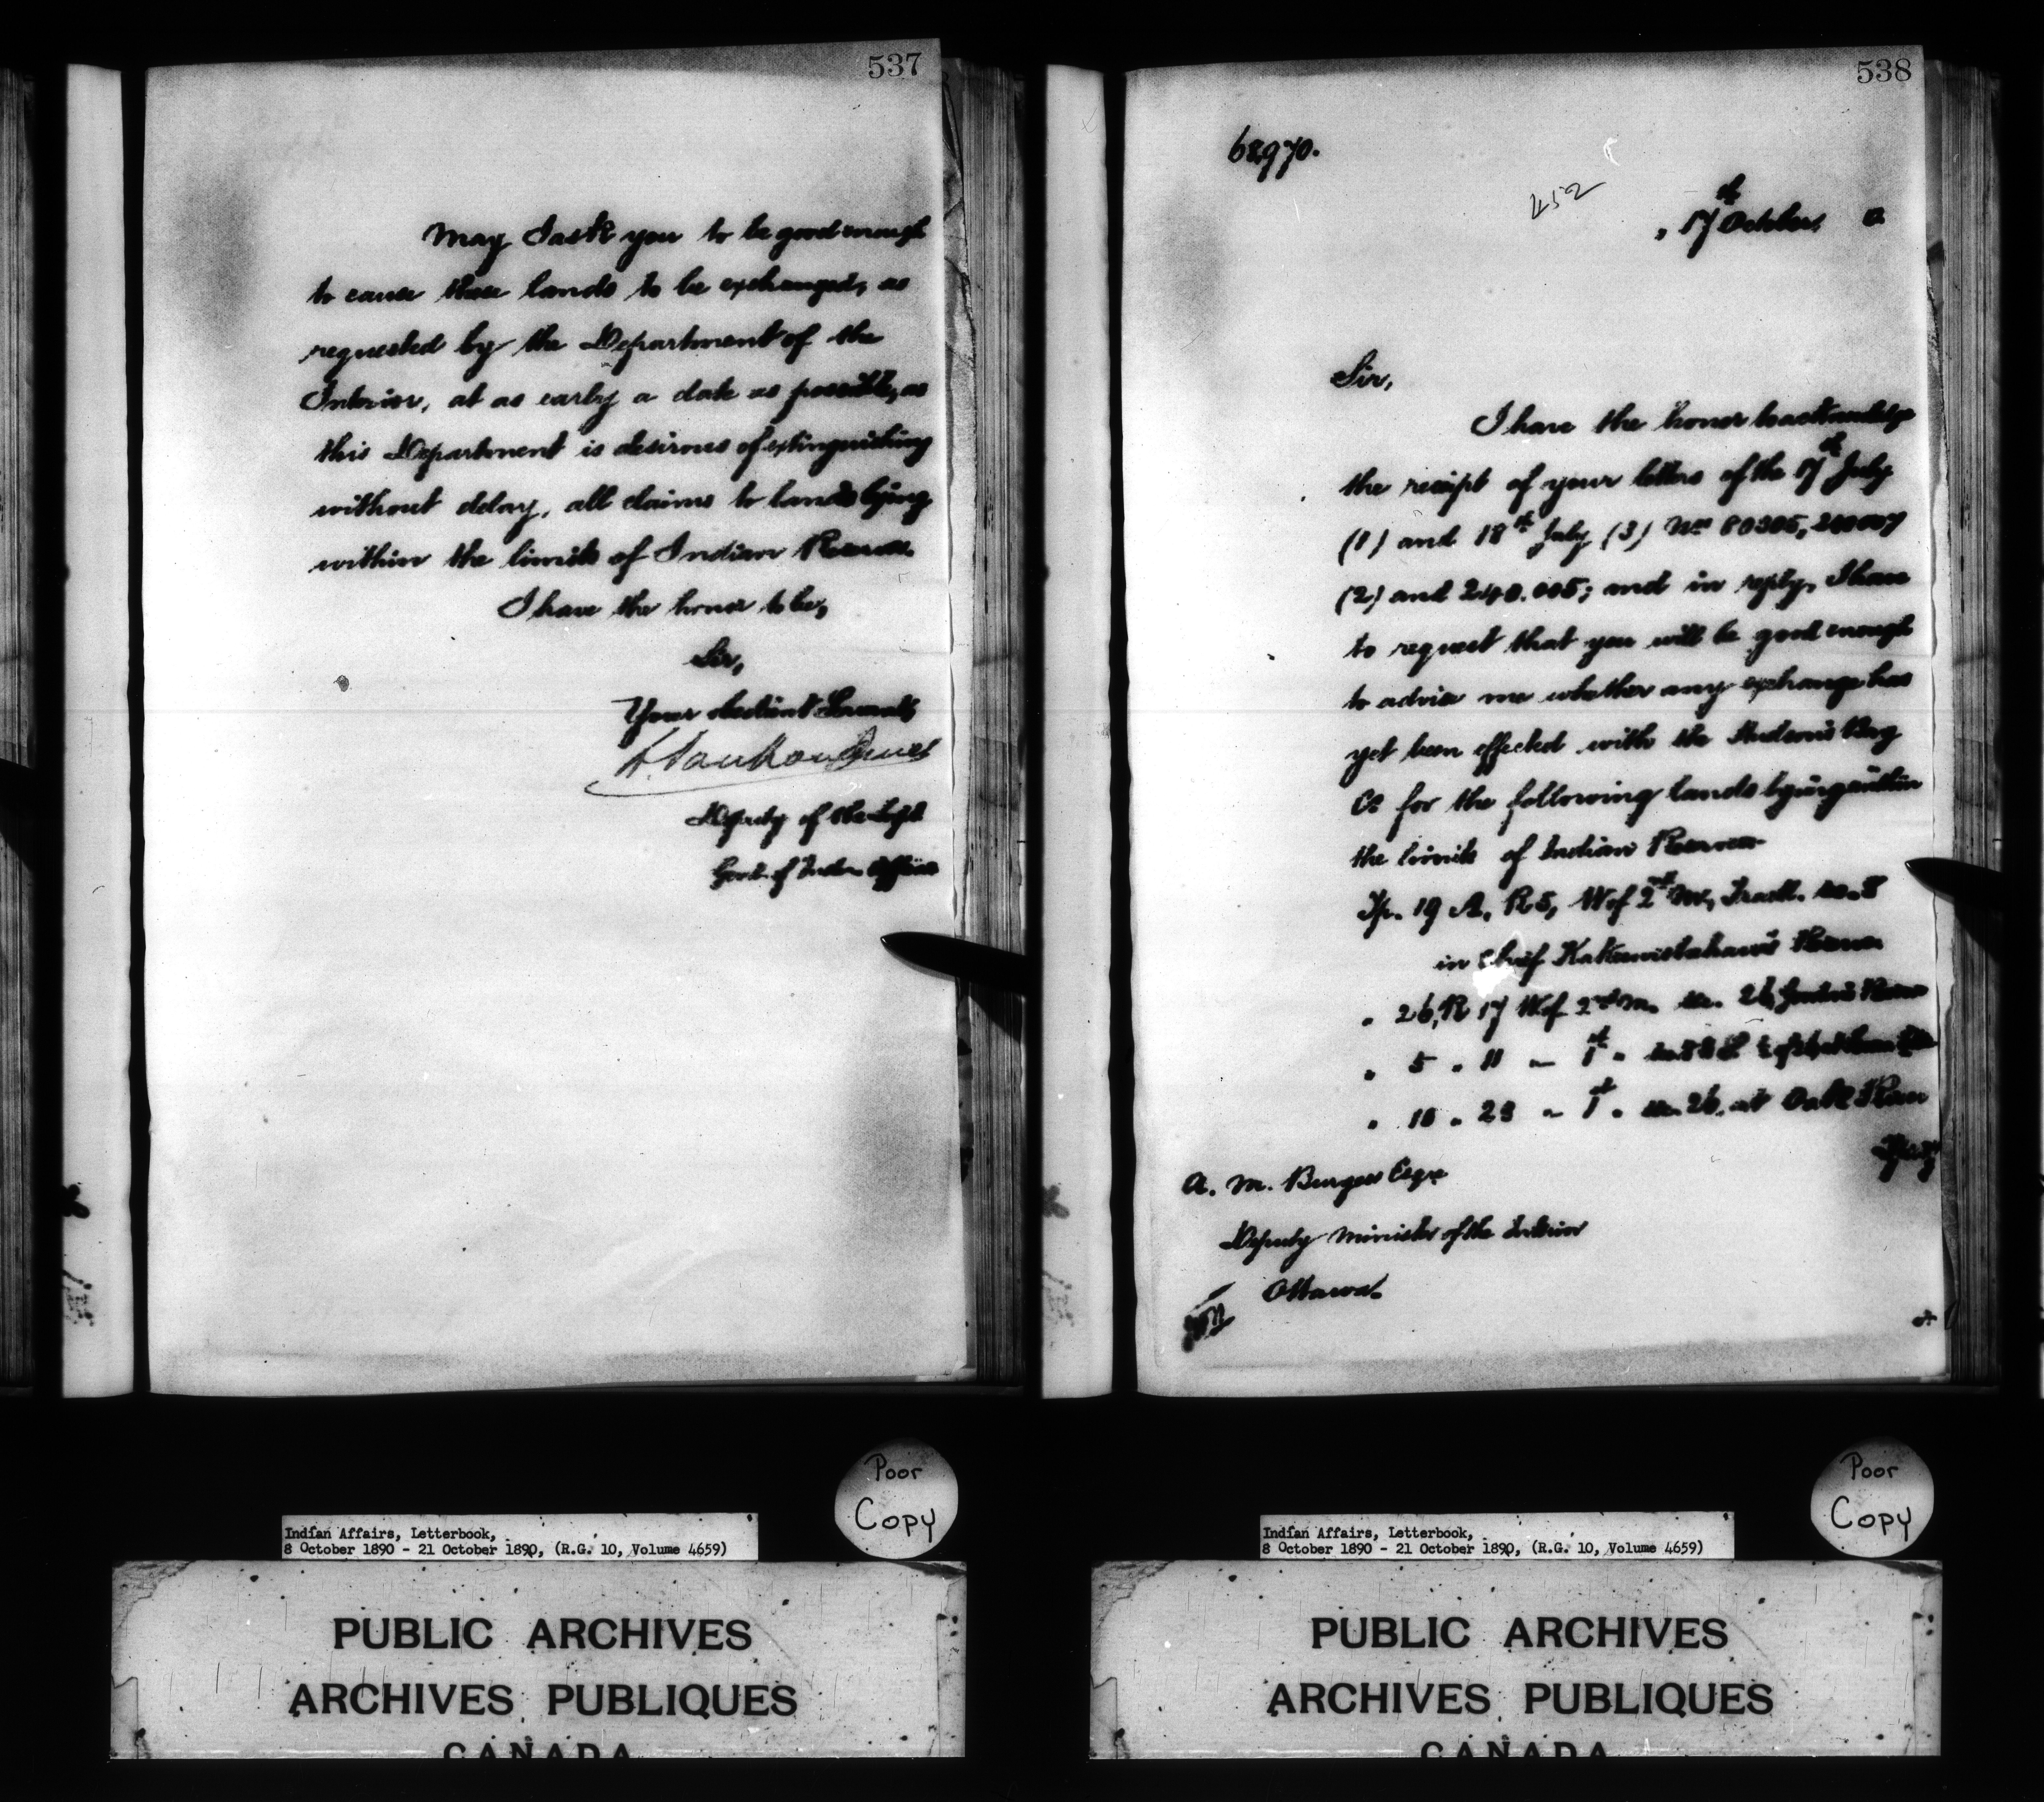 537
May I ask you to be good enough
to cause these lands to be exchanged, as
requested by the Department of the
Interior, at as early a date as possible, as
this Department is desirous of extinguishing
without delay, all claims to lands lying
within the limits of Indian Reserves.
I have the honor to be,
Sir,
Your obedient Servant,
L. Vankoughnet
Deputy of the Supt
Genl. of Indian Affairs
538
68,970.
452
17th October
Sir,
I have the honor to acknowledge
the receipt of your letters of the 17th July
(1) and 18th July (3) Nos 80305, 240007
(2) and 240.005; and in reply, I have
to request that you will be good enough
to advise me whether any exchange has
yet been effected with the Hudson's Bay
Co for the following lands lying within
the limits of Indian Reserves
Tp. 19 A, R 5, W of 2nd M, Fractl. sec. 8
in Chief Kakewistahaw's Reserve
" 26, R 17 W of 2nd M. sec. 26, Gordon's Reserve
" 5 " 11 " 1st "
" 10 " 23 " 1st " sec. 26, at Oak River
A. M. Burgess Esqre
Deputy Minister of the Interior
Ottawa.
Poor
Copy
Indian Affairs, Letterbook,
8 October 1890 - 21 October 1890, (R.G. 10, Volume 4659)
PUBLIC ARCHIVES
ARCHIVES PUBLIQUES
CANADA
Poor
Copy
Indian Affairs, Letterbook,
8 October 1890 - 21 October 1890, (R.G. 10, Volume 4659)
PUBLIC ARCHIVES
ARCHIVES PUBLIQUES
CANADA